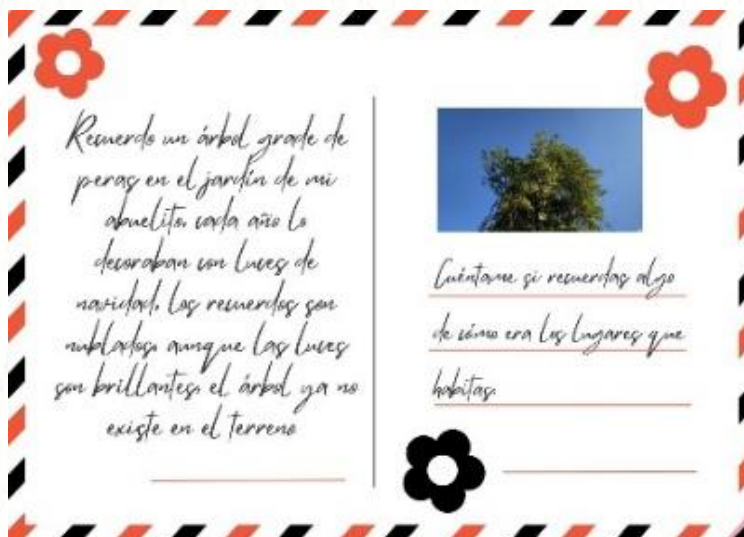 Recuerdo un árbol grade de
peras en el jardín de mi
abuelito, cada año lo
decoraban con luces de
navidad, los recuerdos son
nublados, aunque las luces
son brillantes, el árbol ya no
existe en el terreno
Cuéntame si recuerdas algo
de cómo era los lugares que
habitas.